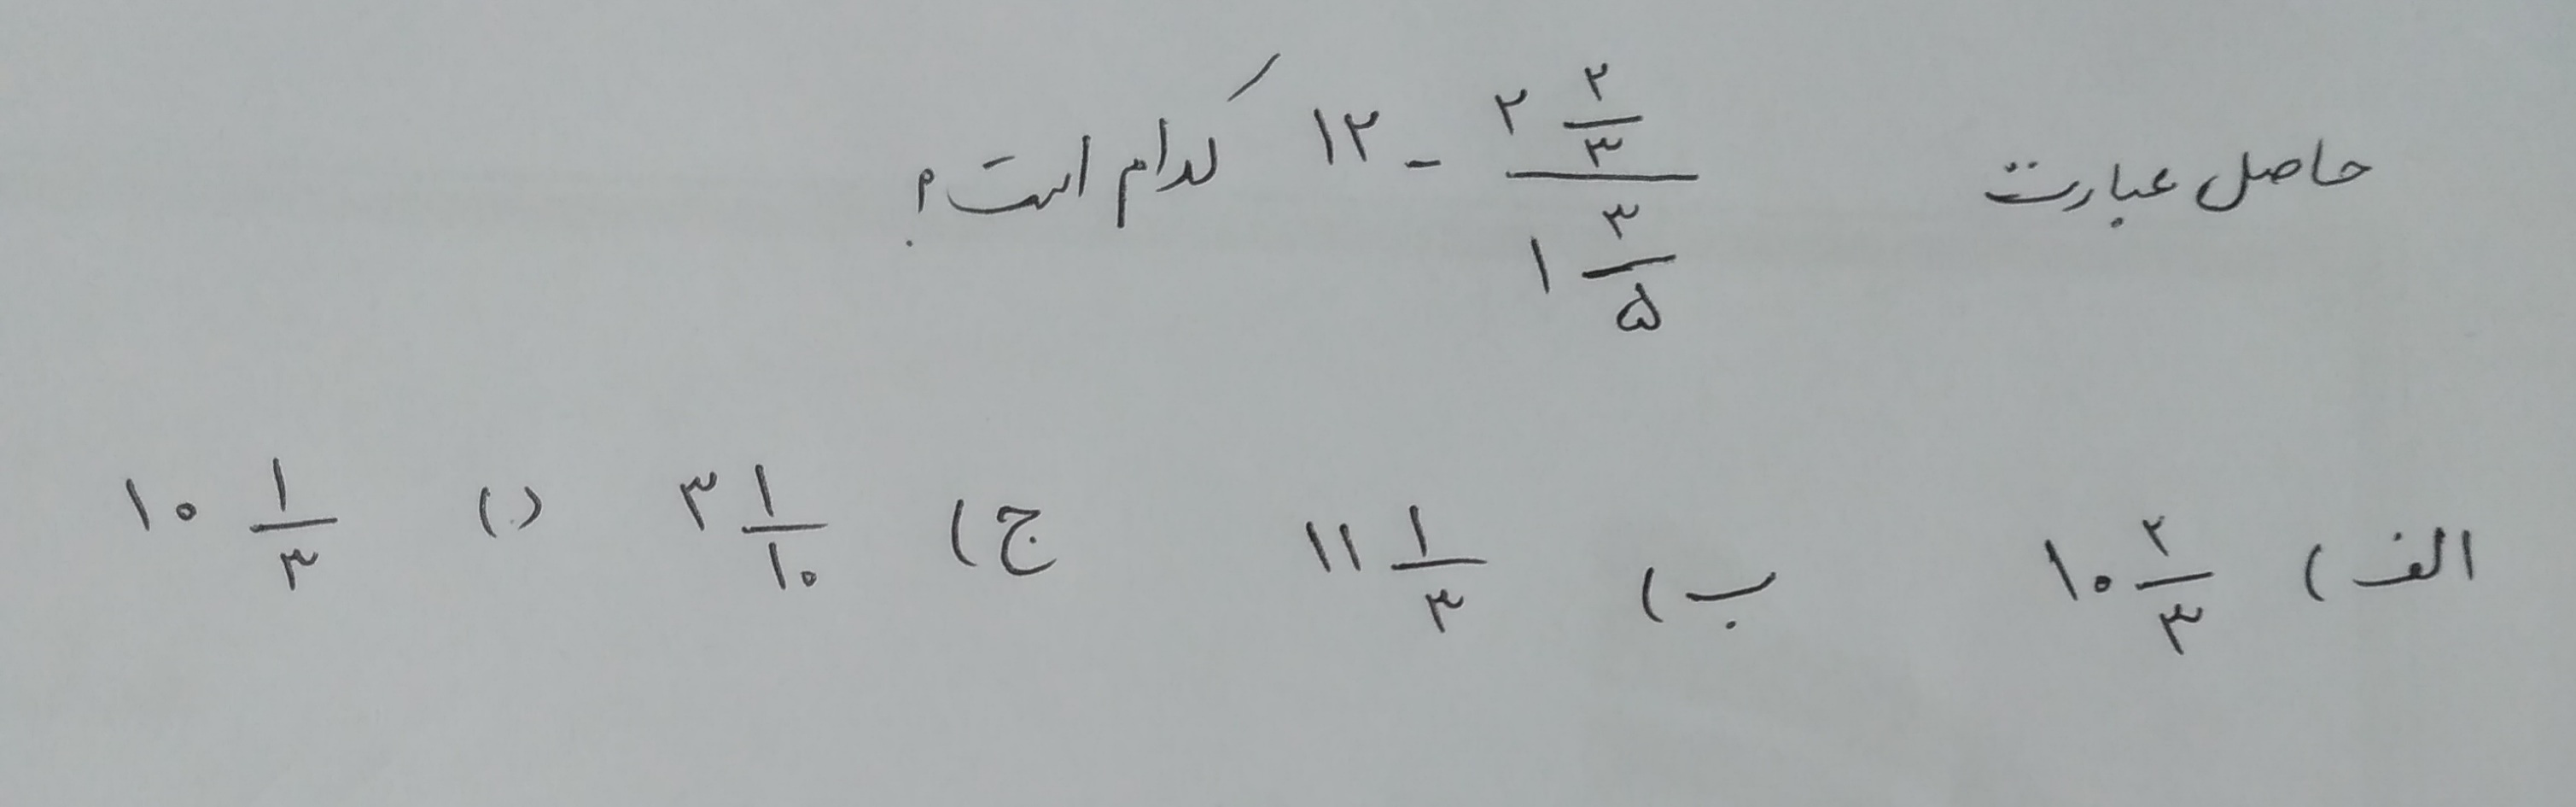 حاصل عبارت ۱۲ - (۲ ۲/۳)/(۱ ۳/۵) کدام است؟
الف) ۱۰ ۲/۳ ب) ۱۱ ۱/۳ ج) ۳ ۱/۱۰ د) ۱۰ ۱/۳